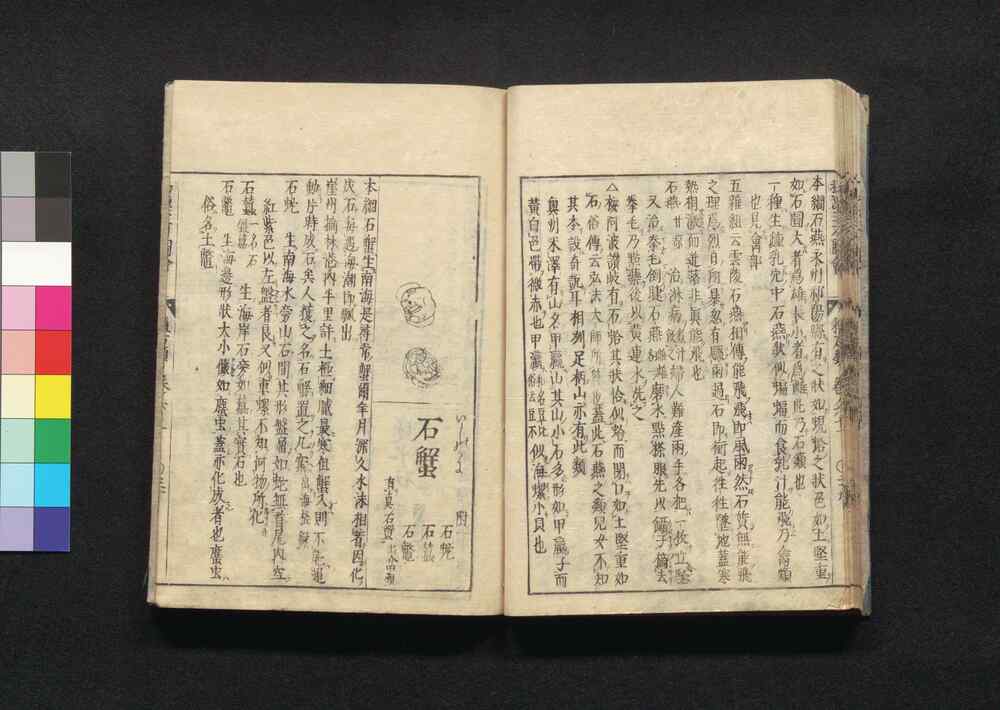 本綱石燕永州祁陽縣有之狀如蜆蛤之狀色如土堅重
如石圓大者爲雄長小者爲雌此乃石類也
一種生鍾乳穴中石燕狀似蝙蝠而食乳汁能飛乃禽類
也見禽部
五雜組云零陵石燕相傳能飛飛即風雨然石質無能飛
之理爲烈日所暴忽有驟雨過石即衝起往往墜地蓋寒
熱相激而迸落非真能飛也
石燕 甘凉 治淋病 婦人難産兩手各把一枚立驗
又治拳毛倒睫石燕 磨水點搽眼先以鑷子摘去
拳毛乃點藥後以黄連水洗之
△按阿波讃岐有石蛤其狀恰似蛤而閉口如土堅重如
石俗傳云弘法大師所 蓋此石燕之類見文不知
其本說奇甑耳相州足柄山亦有此類
奥州米澤有山名甲蠃山其山小石多形如甲蠃子而
黄白色帶微赤也甲蠃 似海螺小貝也
石蟹
石蛇
石蠶
石鼈
本綱石蟹生南海是尋常蟹爾年月深久水沫相着因化
成石每遇海潮即飄出
崖州榆林港内半里許土極細膩最寒但蟹入則不能運
動片時成石矣人獲之名石蟹置之几案
石蛇 生南海水旁山石間其形盤屈如蛇無首尾内空
紅紫色以左盤者良又似車螺不知何物所化
石蠶 一名石僵蠶 生海岸石旁如蠶其實石也
石鼈 生海邊形狀大小儼如䗪虫蓋亦化成者也䗪虫
俗名土鼈